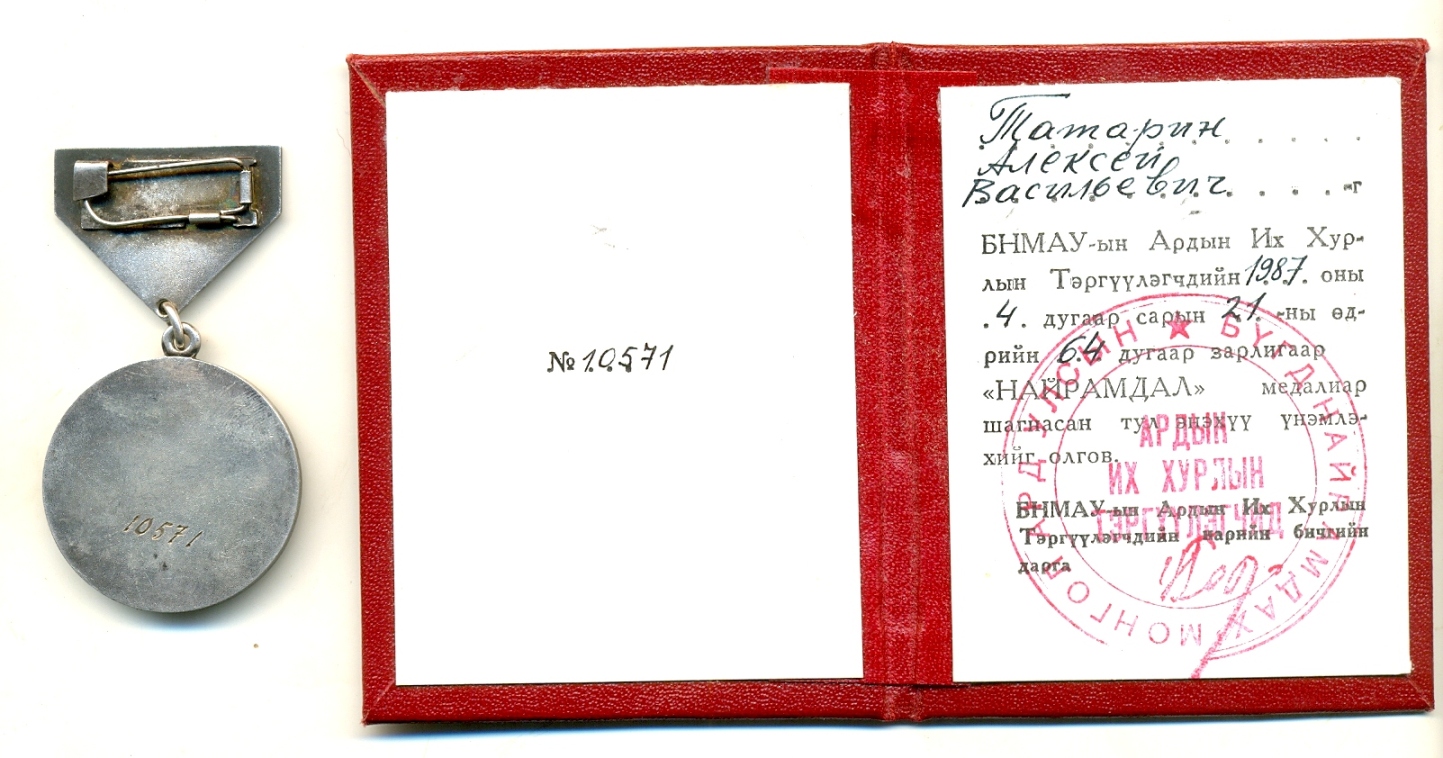 10571
№ 10571
Татарин
Алексей
Васильевич -г
БНМАУ-ын Ардын Их Хур-
лын Тэргүүлэгчдийн 1987. оны
.4. дугаар сарын 21. -ны өд-
рийн 64 дугаар зарлигаар
«НАЙРАМДАЛ» медалиар
шагнасан тул энэхүү үнэмлэ-
хийг олгов.
БНМАУ-ын Ардын Их Хурлын
Тэргүүлэгчдийн нарийн бичгийн
дарга
БҮГД НАЙРАМДАХ МОНГОЛ АРД УЛСЫН
АРДЫН
ИХ ХУРЛЫН
ТЭРГҮҮЛЭГЧИД